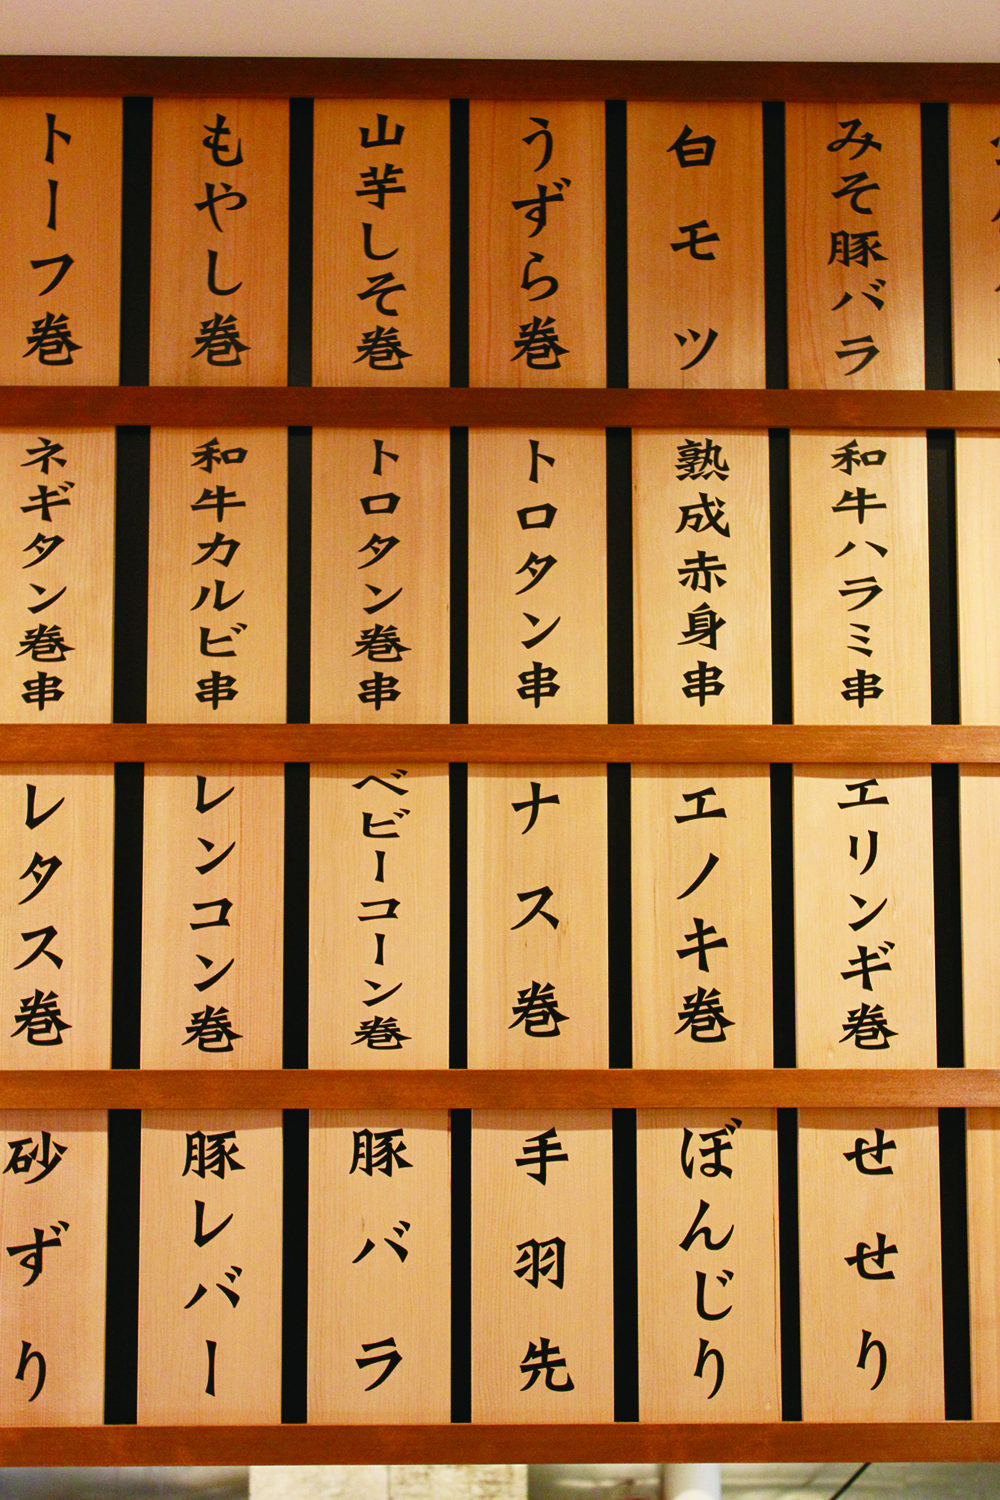 みそ豚バラ
白モツ
うずら巻
山芋しそ巻
もやし巻
トーフ巻
和牛ハラミ串
熟成赤身串
トロタン串
トロタン巻串
和牛カルビ串
ネギタン巻串
エリンギ巻
エノキ巻
ナス巻
ベビーコーン巻
レンコン巻
レタス巻
せせり
ぼんじり
手羽先
豚バラ
豚レバー
砂ずり